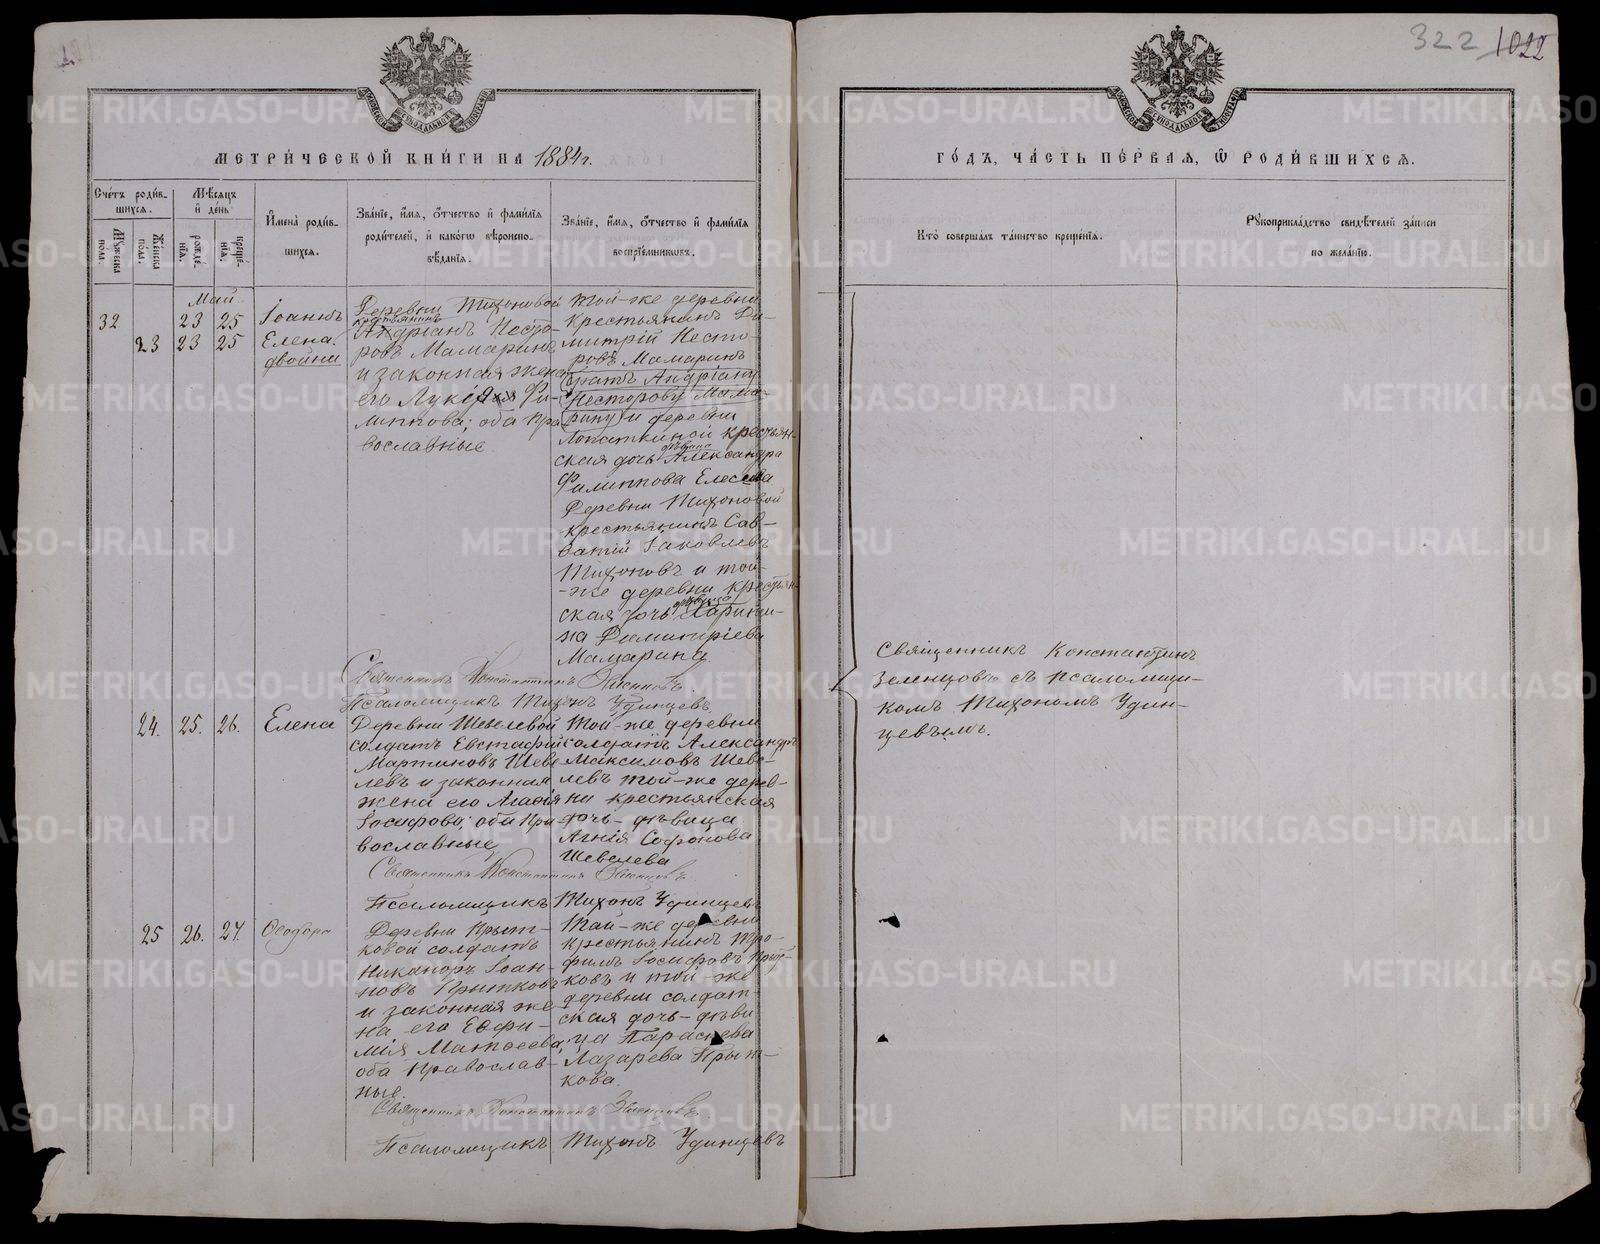 322 1022
МЕТРИ́ЧЕСКОЙ КНИ́ГИ НА 1884 г.
ГО́ДЪ, ЧА́СТЬ ПЕ́РВАЯ, Ѡ РОДИ́ВШИХСЯ.
Сче́тъ роди́в-
шихся.
Мꙋ́жеска по́ла.
Же́нска по́ла.
Мѣ́сяцъ
и де́нь
рожде́-
нія.
креще́-
нія.
Имена̀ роди́в-
шихся.
Зва́ніе, и́мя, о́тчество и фами́лія
роди́телей, и како́гѡ вѣроиспо-
вѣ́данія.
Зва́ніе, и́мя, о́тчество и фами́лія
воспріе́мниковъ.
Кто̀ соверша́лъ та́инство креще́нія.
Рꙋкоприкла́дство свидѣ́телей за́писи
по жела́нію.
Май
32
23 25
Іоаннъ
23 23 25
Елена
двойни
Деревни Тихоновой
крестьянинъ
Андріанъ Несто-
ровъ Мамаринъ
и законная жена
его Лукерія Фи-
липпова; оба пра
вославные
Той-же деревни
крестьянинъ Ди-
митрій Несто-
ровъ Мамаринъ
братъ Андріану
Несторову Мама-
рину и деревни
Лопаткиной крестьян-
ская дочь девица Александра
Филиппова Елесева
Деревни Тихоновой
крестьянинъ Сав-
ватій Іаковлевъ
Тихоновъ и той-
же деревни крестьян-
ская дочь девица Харити-
на Димитріева
Мамарина
Священникъ Константинъ Зеленцовъ
Псаломщикъ Тихонъ Удинцевъ
24. 25. 26.
Елена
Деревни Шевелевой
солдатъ Евстафій
Мартиновъ Шеве
левъ и законная
жена его Агафія
Іосифова; оба пра
вославные
Той-же деревни
солдатъ Александръ
Максимовъ Шеве-
левъ той-же дерев-
ни крестьянская
дочь-девица
Агнія Софонова
Шевелева
Священникъ Константинъ Зеленцовъ
Псаломщикъ Тихонъ Удинцевъ
25 26. 27.
Ѳеодора
Деревни Прыт-
ковой солдатъ
Никаноръ Іоан-
новъ Прытковъ
и законная же-
на его Евфи-
мія Матѳеева;
оба православ-
ные.
Той-же деревни
крестьянинъ Тро-
фимъ Іосифовъ Прыт-
ковъ и той-же
деревни солдат-
ская дочь-деви
ца Параскева
Лазарева Прыт-
кова.
Священникъ Константинъ Зеленцовъ
Псаломщикъ Тихонъ Удинцевъ
Священникъ Константинъ
Зеленцовъ съ псаломщи-
комъ Тихономъ Удин-
цевымъ.
METRIKI.GASO-URAL.RU